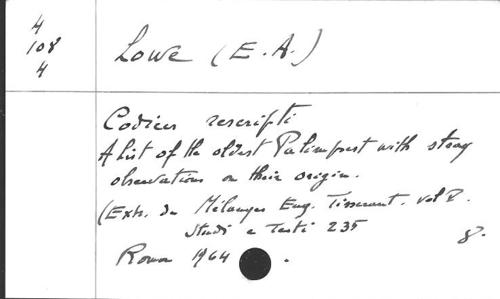 4
108
4
Lowe (E.A.)
Codices rescripti
A list of the oldest Palimpsest with stray
observations on their origin.
(Extr. du Mélanges Eug. Tisserant. vol V.
Studi e Testi 235
8.
Roma 1964 .